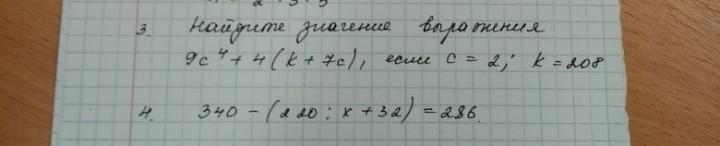 3. Найдите значение выражения
9c⁴ + 4(k + 7c), если c = 2; k = 208
4. 340 - (220 : x + 32) = 286.